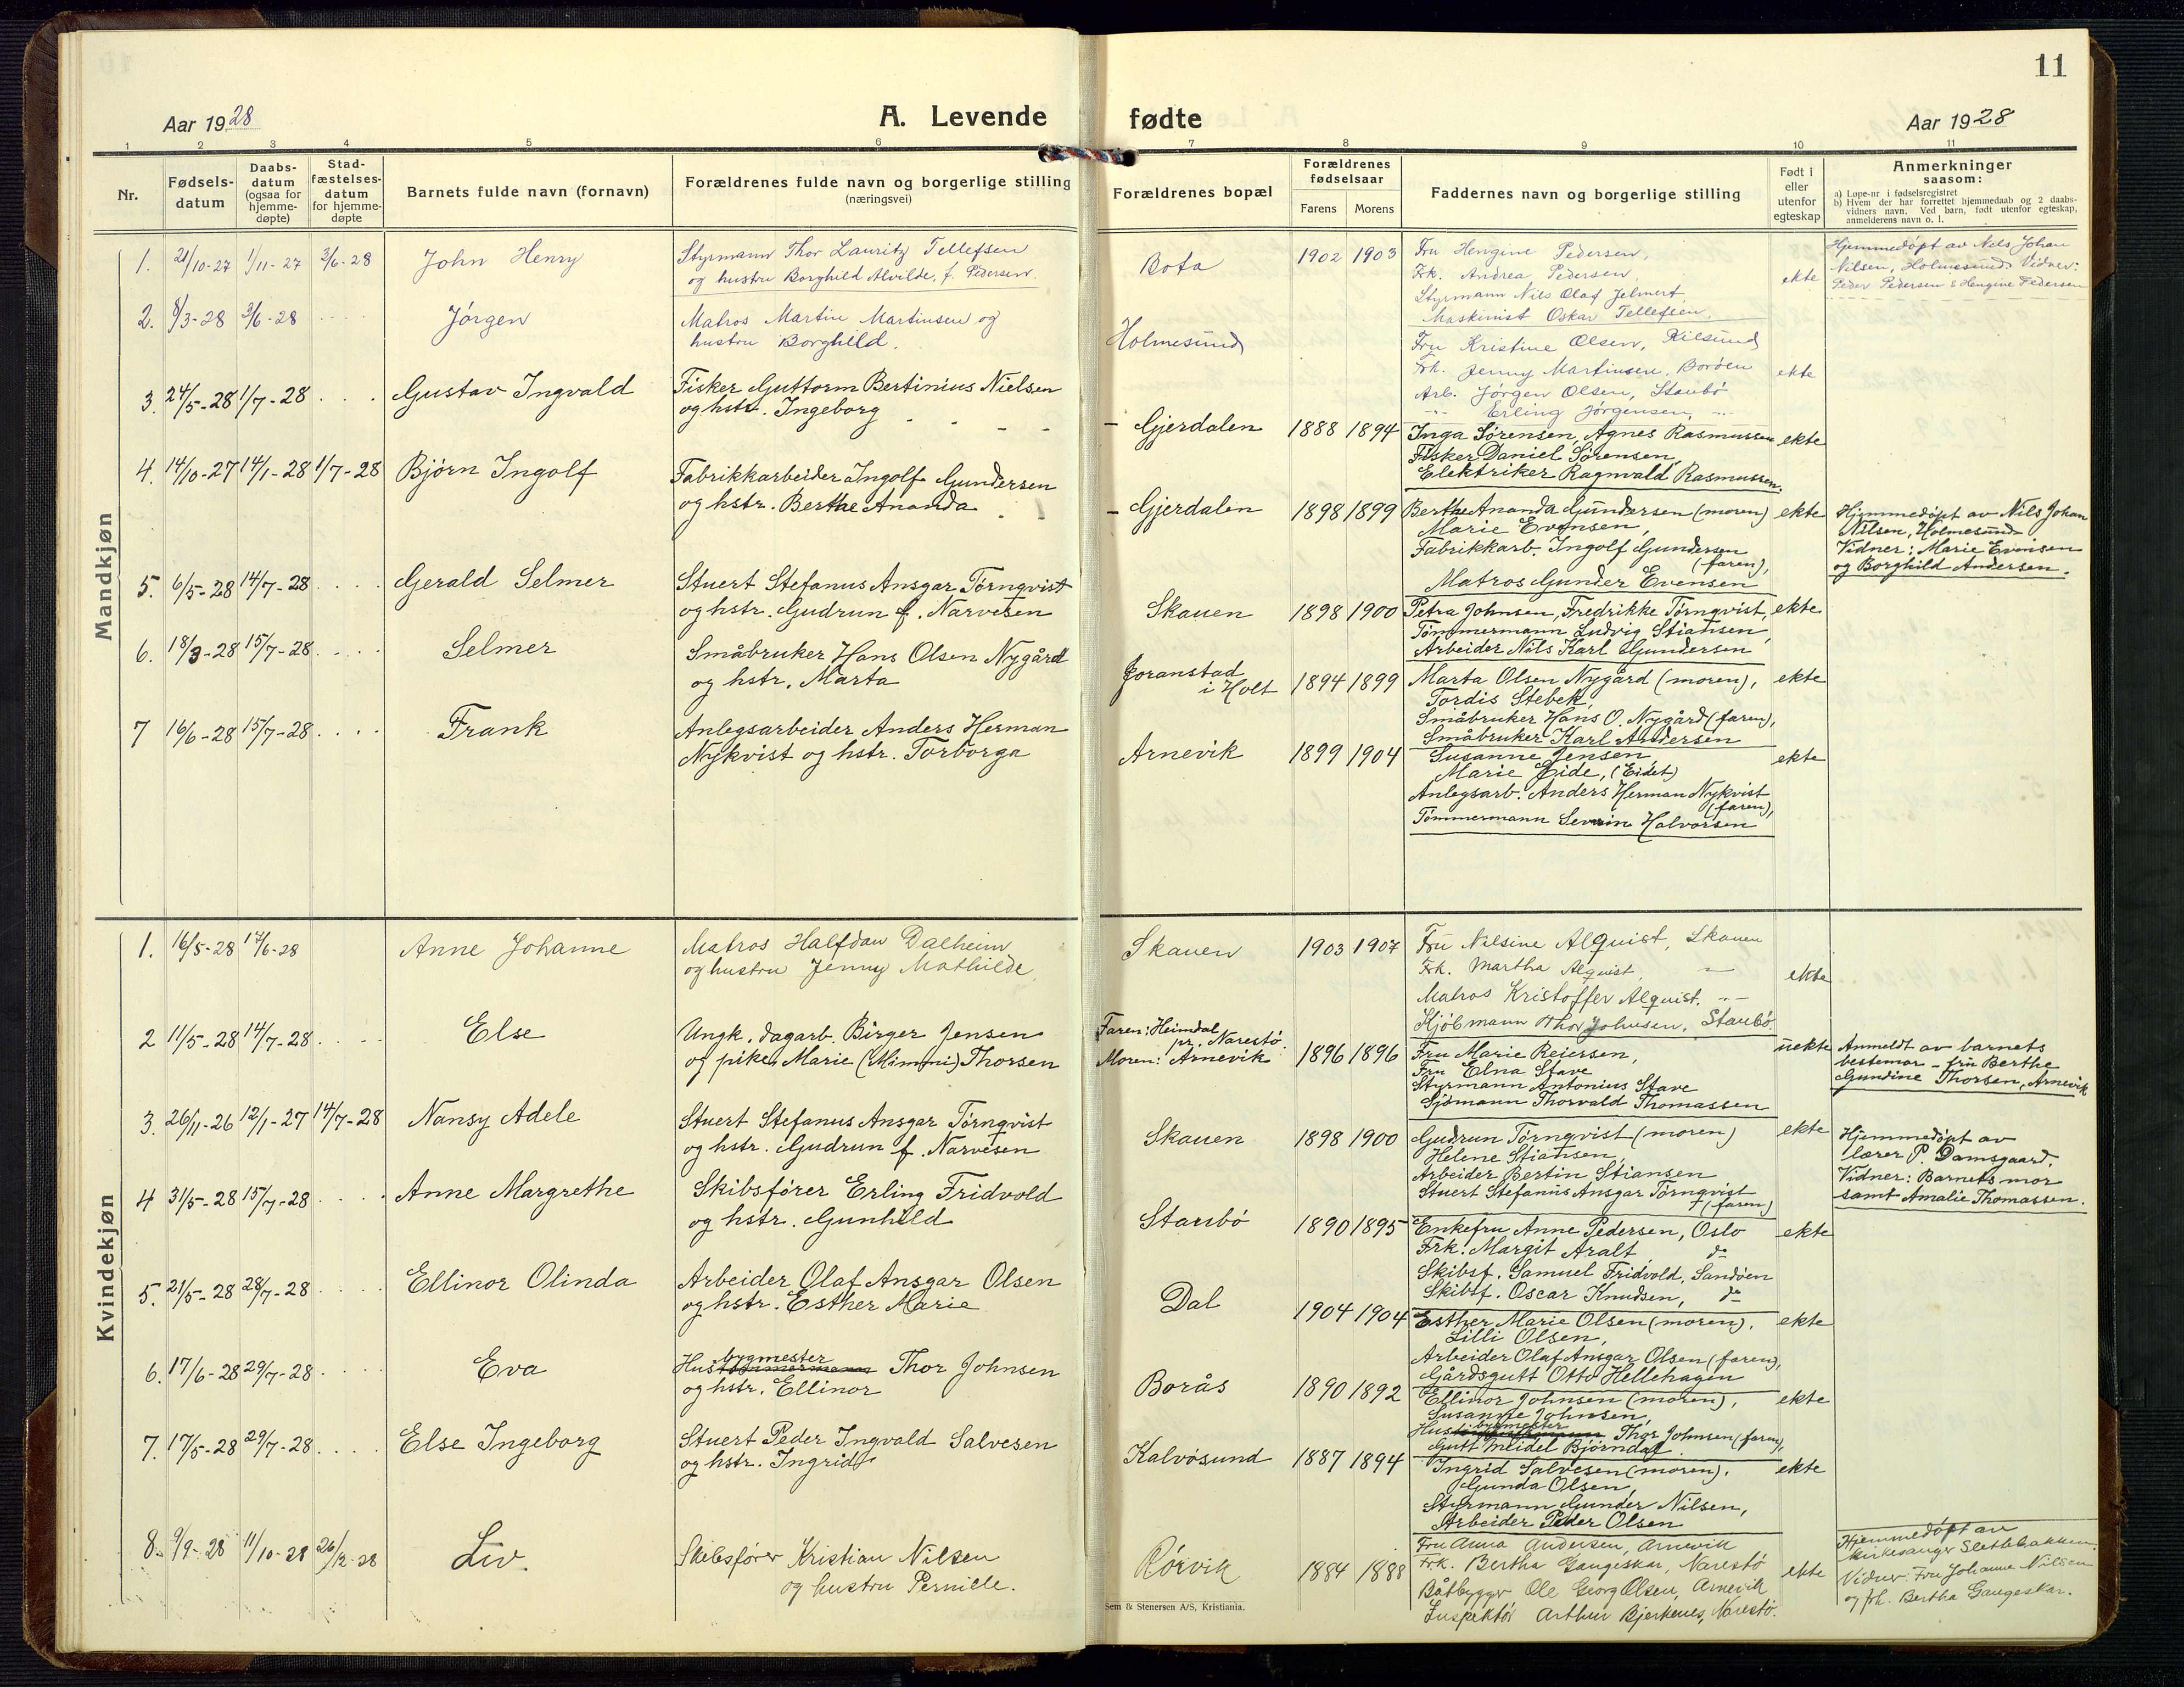 11
Aar 1928
A. Levende fødte
Aar 1928
1 2 3 4 5 6 7 8 9 10 11
Nr.
Fødsels-
datum
Daabs-
datum
(ogsaa for
hjemme-
døpte)
Stad-
fæstelses-
datum
for hjemme-
døpte
Barnets fulde navn (fornavn)
Forældrenes fulde navn og borgerlige stilling
(næringsvei)
Forældrenes bopæl
Forældrenes
fødselsaar
Farens Morens
Faddernes navn og borgerlige stilling
Født i
eller
utenfor
egteskap
Anmerkninger
saasom:
a) Løpe-nr i fødselsregistret
b) Hvem der har forrettet hjemmedaab og 2 daabs-
vidners navn. Ved barn, født utenfor egteskap,
anmelderens navn o. l.
Mandkjøn
1. 21/10-27 1/11-27 3/6-28 John Henry
Styrmann Thor Lauritz Tellefsen
og hustru Borghild Alvilde, f. Pedersen.
Bota 1902 1903
Fru Hengine Pedersen,
Frk. Andrea Pedersen,
Styrmann Nils Olaf Jelmert,
Maskinist Oskar Tellefsen.
ekte
Hjemmedøpt av Nils Johan
Nilsen, Holmesund. Vidner:
Peder Pedersen & Hengine Pedersen
2. 8/3-28 3/6-28 Jørgen
Matros Martin Martinsen og
hustru Borghild.
Holmesund
Fru Kristine Olsen, Kilsund
Frk. Jenny Martinsen, Borøen
Arb. Jørgen Olsen, Staubø
-"- Erling Jørgensen, -"-
ekte
3. 24/5-28 1/7-28 Gustav Ingvald
Fisker Guttorm Bertinius Nielsen
og hstr. Ingeborg
- Gjerdalen 1888 1894
Inga Sørensen, Agnes Rasmussen
Fisker Daniel Sørensen,
Elektriker Ragnvald Rasmussen.
ekte
4. 14/10-27 14/1-28 1/7-28 Bjørn Ingolf
Fabrikkarbeider Ingolf Gundersen
og hstr. Berthe Ananda
- Gjerdalen 1898 1899
Berthe Ananda Gundersen (moren)
Marie Evensen,
Fabrikkarb. Ingolf Gundersen
(faren),
Matros Gunder Evensen
ekte
Hjemmedøpt av Nils Johan
Nilsen, Holmesund.
Vidner: Marie Evensen
og Borghild Andersen.
5. 6/5-28 14/7-28 Gerald Selmer
Stuert Stefanus Ansgar Tørnqvist
og hstr. Gudrun f. Narvesen
Skauen 1898 1900
Petra Johnsen, Fredrikke Tørnqvist,
Tømmermann Ludvig Stiansen,
Arbeider Nils Karl Gundersen
ekte
6. 18/3-28 15/7-28 Selmer
Småbruker Hans Olsen Nygård
og hstr. Marta
Goranstad
i Holt 1894 1899
Marta Olsen Nygård (moren),
Tordis Stebek,
Småbruker Hans O. Nygård (faren),
Småbruker Karl Andersen
ekte
7 16/6-28 15/7-28 Frank
Anlegsarbeider Anders Herman
Nykvist og hstr. Torborga
Arnevik 1899 1904
Susanne Jensen,
Marie Eide, (Eidet)
Anlegsarb. Anders Herman Nykvist
(faren),
Tømmermann Severin Halvorsen
ekte
Kvindekjøn
1. 16/5-28 17/6-28 Anne Johanne
Matros Halfdan Dalheim
og hustru Jenny Mathilde.
Skauen 1903 1907
Fru Nilsine Alquist, Skauen
Frk. Martha Alquist, -"-
Matros Kristoffer Alquist. -"-
Kjøbmann Thor Johnsen, Staubø.
ekte
2 11/5-28 14/7-28 Else
Ungk. dagarb. Birger Jensen
og piken Marie (Mimmi) Thorsen
Faren: Heimdal
pr. Narestø.
Moren: Arnevik 1896 1896
Fru Marie Reiersen,
Fru Elna Stave
Styrmann Antonius Stave
Sjømann Thorvald Thomassen
uekte
Anmeldt av barnets
bestemor - fru Berthe
Gundine Thorsen, Arnevik
3. 26/11-26 12/1-27 14/7-28 Nansy Adele
Stuert Stefanus Ansgar Tørnqvist
og hstr. Gudrun f. Narvesen
Skauen 1898 1900
Gudrun Tørnqvist (moren)
Helene Stiansen,
Arbeider Bertin Stiansen
Stuert Stefanus Ansgar Tørnqvist
(faren)
ekte
Hjemmedøpt av
lærer P. Damsgaard.
Vidner: Barnets mor
samt Amalie Thomassen.
4 31/5-28 15/7-28 Anne Margrethe
Skibsfører Erling Fridvold
og hstr. Gunhild
Staubø 1890 1895
Enkefru Anne Pedersen, Oslo
Frk. Margit Aralt do
Skibsf. Samuel Fridvold, Sandøen
Skibsf. Oscar Knudsen, do
ekte
5. 21/5-28 28/7-28 Ellinor Olinda
Arbeider Olaf Ansgar Olsen
og hstr. Esther Marie
Dal 1904 1904
Esther Marie Olsen (moren),
Lilli Olsen,
Arbeider Olaf Ansgar Olsen (faren),
Gårdsgutt Otto Hellehagen
ekte
6. 17/6-28 29/7-28 Eva
Husbygmester Thor Johnsen
og hstr. Ellinor
Borås 1890 1892
Ellinor Johnsen (moren),
Susanne Johnsen,
Husbygmester Thor Johnsen (faren),
Gutt Meidel Bjørndal
ekte
7. 17/5-28 29/7-28 Else Ingeborg
Stuert Peder Ingvald Salvesen
og hstr. Ingrid
Kalvøsund 1887 1894
Ingrid Salvesen (moren),
Gunda Olsen,
Styrmann Gunder Nilsen,
Arbeider Peder Olsen
ekte
8. 9/9-28 11/10-28 26/12-28 Liv.
Skibsfører Kristian Nilsen
og hustru Pernille.
Rørvik 1884 1888
Fru Anna Andersen, Arnevik
Frk. Bertha Gaugeskar, Narestø
Båtbygger Ole Georg Olsen, Arnevik
Inspektør Arthur Bjerkenes, Narestø.
ekte
Hjemmedøpt av
kirkesanger Slettebakken.
Vidner: Fru Johanne Nilsen
og frk. Bertha Gaugeskar.
Sem & Stenersen A/S, Kristiania.